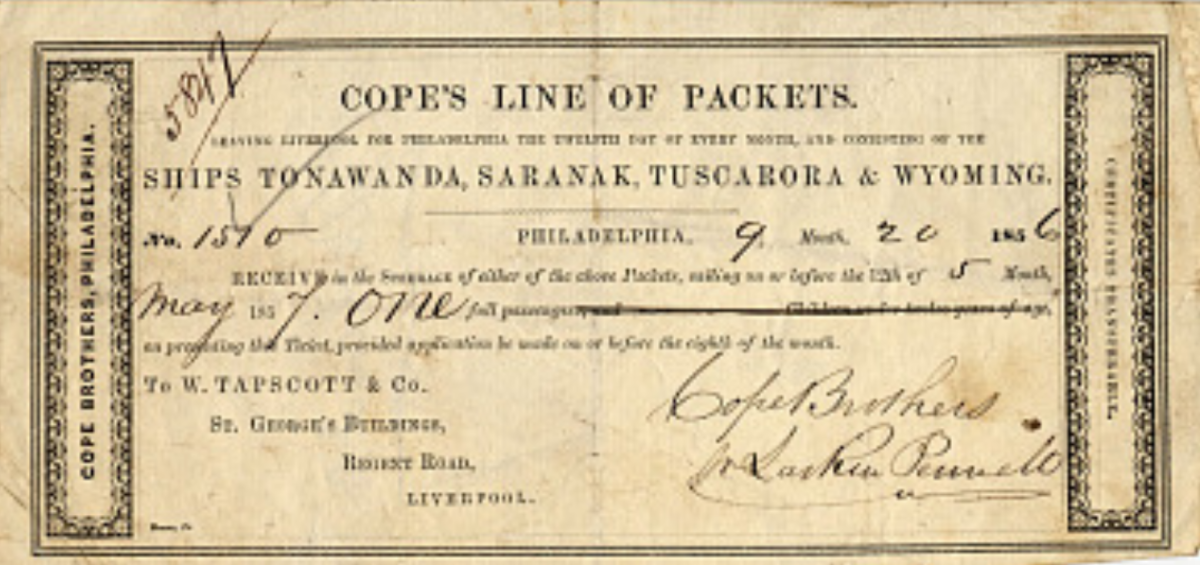 5847
COPE'S LINE OF PACKETS.
LEAVING LIVERPOOL FOR PHILADELPHIA THE TWELFTH DAY OF EVERY MONTH, AND CONSISTING OF THE
SHIPS TONAWANDA, SARANAK, TUSCARORA & WYOMING.
No. 1510 PHILADELPHIA, 9 Month, 20 1856
RECEIVE in the STEERAGE of either of the above Packets, sailing on or before the 12th of 5 Month,
May 1857. One full passenger, and Children under twelve years of age,
on presenting this Ticket, provided application be made on or before the eighth of the month.
To W. TAPSCOTT & Co.
ST. GEORGE'S BUILDINGS,
REGENT ROAD,
LIVERPOOL.
Cope Brothers
Larkin Pennell
COPE BROTHERS, PHILADELPHIA.
CERTIFICATES TRANSFERABLE.